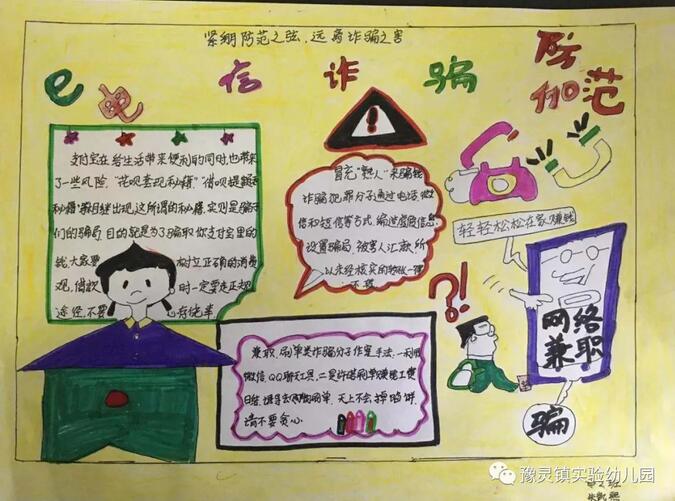 紧绷防范之弦,远离诈骗之害
e电信诈骗防范
110
支付宝在给生活带来便利的同时,也带来
了一些风险,"花呗套现秘籍""借呗提额
秘籍"等相继出现,这所谓的秘籍,实则是骗子
们的骗局,目的就是为了骗取你支付宝里的
钱,大家要树立正确的消费
观,借款时一定要走正规
途径,不要
冒充"熟人"来骗钱
诈骗犯罪分子通过电话,微
信和短信等方式,编造虚假信息,
设置骗局,被害人汇款,所
以未经核实的
兼职,刷单类诈骗分子作案手法:一利用
微信、QQ聊天工具,二是许诺刷单赚佣工资
日结,天上不会掉馅饼,
请不要贪心.
轻轻松松在家赚钱
网络
兼职
?!
骗
豫灵镇实验幼儿园